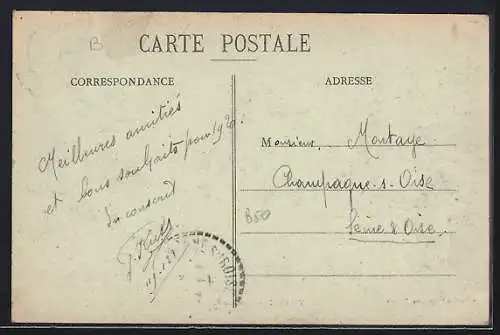 B
CARTE POSTALE
CORRESPONDANCE
ADRESSE
Meilleures amitiés
et bons souhaits pour 192
du conscrit
Monsieur, Montaye
Champagne-s-Oise
B50
Seine & Oise